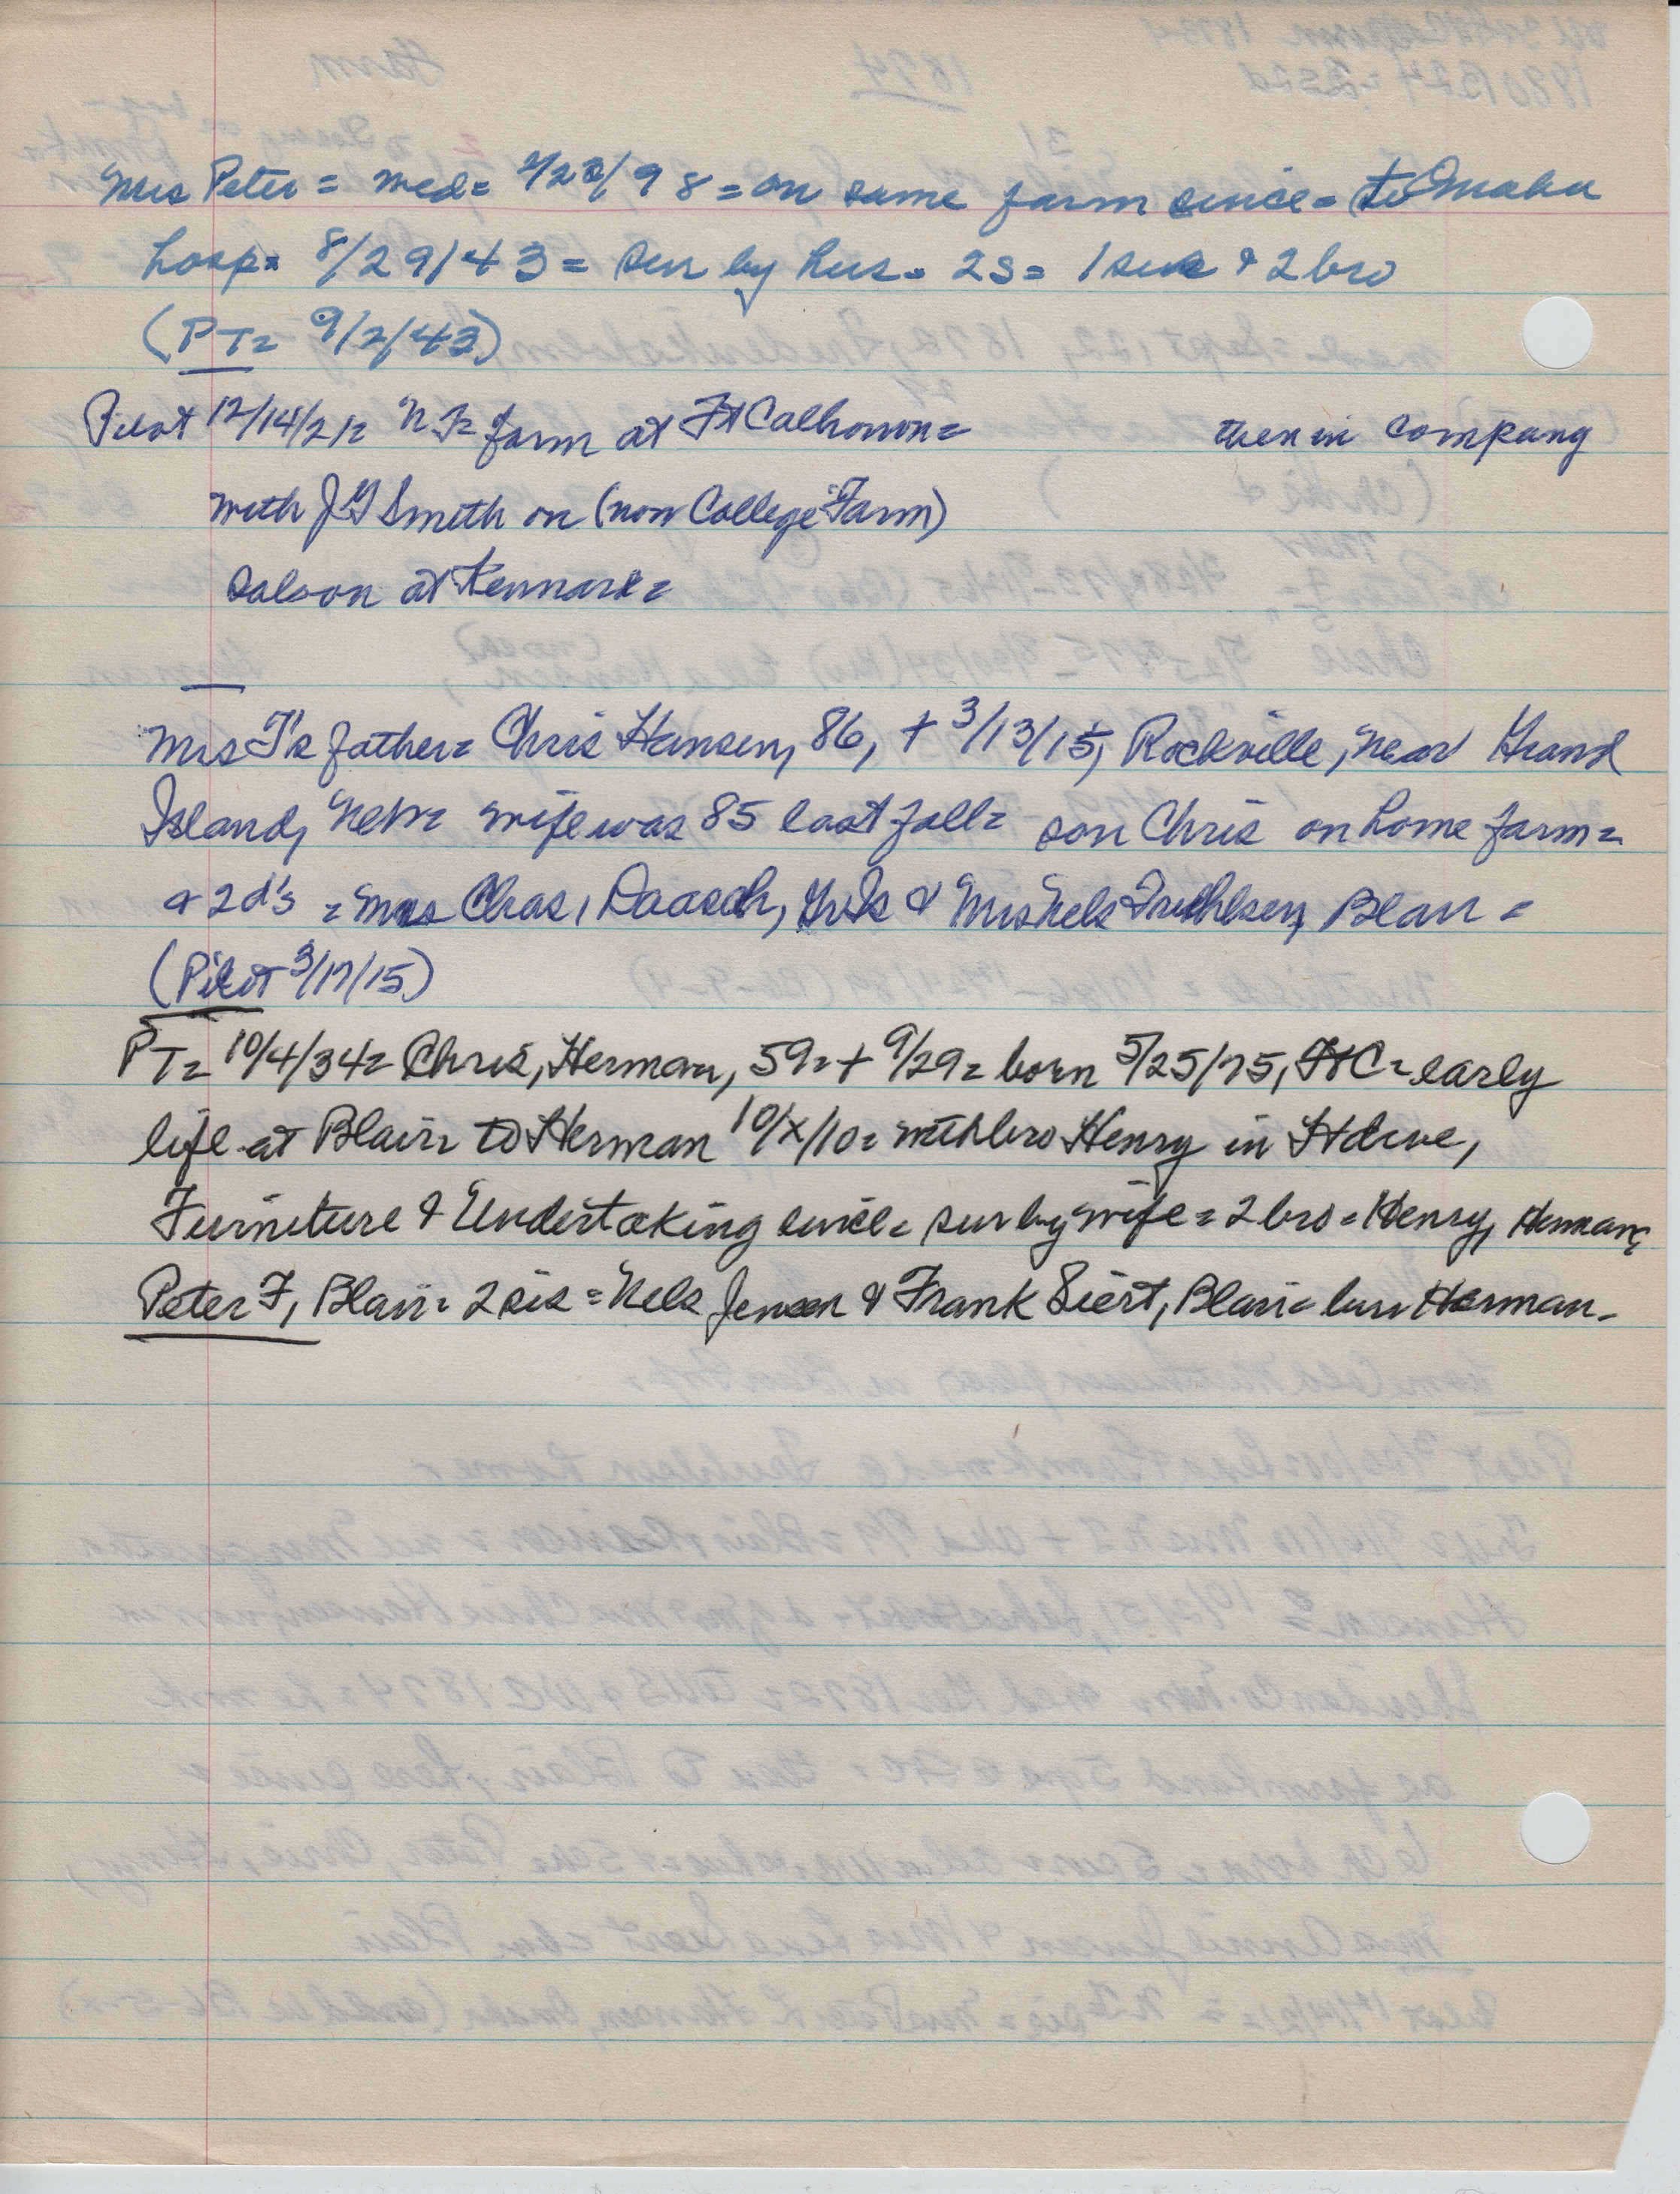 Mrs Peter = med = 2/22/98 = on same farm since = to Omaha
hosp = 8/29/43 = sur by hus = 2s = 1 sis & 2 bro
(PT = 9/2/43)
Pilot 12/14/21 = NF = farm at Ft Calhoun = then in company
with J Y Smith on (now College Farm)
Saloon at Kennard =
Mrs F's father = Chris Hansen, 86, + 3/13/15, Rockville, near Grand
Island, Nebr = wife was 85 last fall = son Chris on home farm =
& 2 d's = Mrs Chas, Paasch, & Mrs Nels Fruhlsen, Blair =
(Pilot 3/17/15)
PT = 10/4/34 = Chris, Herman, 59 = + 9/29 = born 5/25/75, Ft C = early
life at Blair = to Herman 10/x/10 = with bro Henry in Hdwe,
Furniture & Undertaking since = sur by wife = 2 bro = Henry, Herman,
Peter F, Blair = 2 sis = Nels Jensen & Frank Siert, Blair = bur Herman =